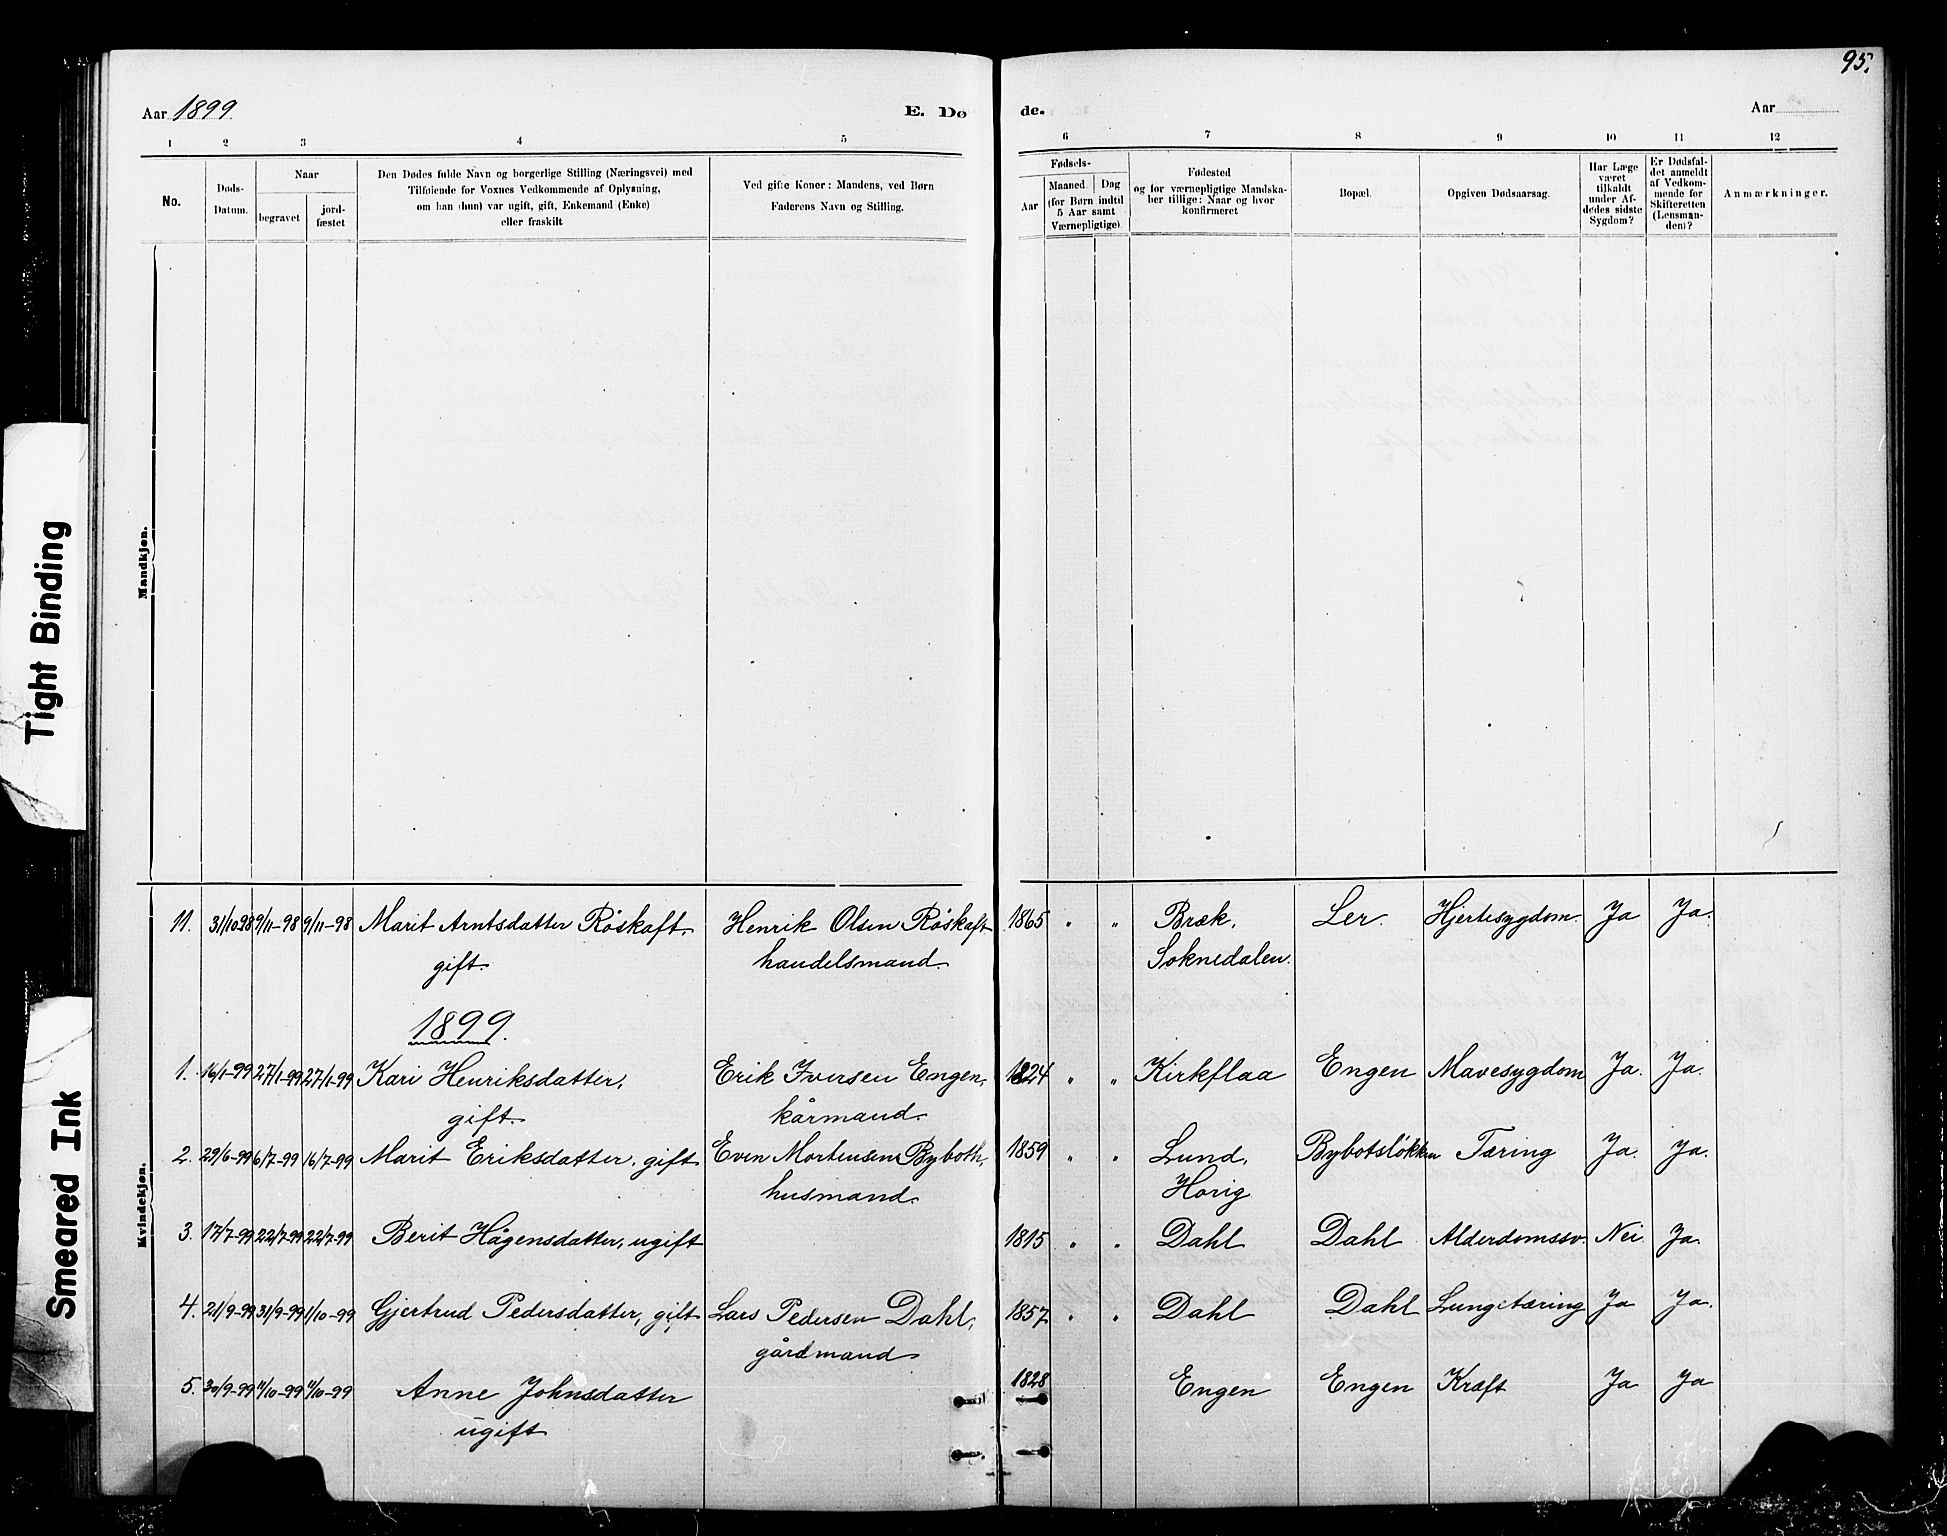 95.
Aar 1899 E. Dø de. Aar
1 2 3 4 5 6 7 8 9 10 11 12
No.
Døds-
Datum.
Naar
begravet
jord-
fæstet
Den Dødes fulde Navn og borgerlige Stilling (Næringsvei) med
Tilføiende for Voxnes Vedkommende af Oplysning,
om han (hun) var ugift, gift, Enkemand (Enke)
eller fraskilt
Ved gifte Koner: Mandens, ved Børn
Faderens Navn og Stilling.
Fødsels-
Aar
Maaned Dag
(for Børn indtil
5 Aar samt
Værnepligtige)
Fødested
og for værnepligtige Mandska-
ber tillige: Naar og hvor
konfirmeret
Bopæl.
Opgiven Dødsaarsag.
Har Læge
været
tilkaldt
under Af-
dødes sidste
Sygdom?
Er Dødsfal-
det anmeldt
af Vedkom-
mende for
Skifteretten
(Lensman-
den)?
Anmærkninger.
Mandkjøn.
Tight Binding
Smeared Ink
Kvindekjøn.
11. 31/10-98 9/11-98 9/11-98 Marit Arntsdatter Röskaft, Henrik Olsen Röskaft 1865 " " Bræk, Ler. Hjertesygdom. Ja Ja.
gift. handelsmand. Soknedalen.
1899.
1. 16/1-99 27/1-99 27/1-99 Kari Henriksdatter, Erik Iversen Engen, 1824 " " Kirkflaa Engen Mavesygdom Ja. Ja.
gift. kårmand.
2. 29/6-99 6/7-99 16/7-99 Marit Eriksdatter, gift Even Mortensen Byboth, 1859 " " Lund, Bybotsløkken Tæring Ja. Ja.
husmand. Horig
3. 17/7-99 22/7-99 22/7-99 Berit Hågensdatter, ugift 1815 " " Dahl Dahl Alderdomssv. Nei Ja.
4. 21/9-99 31/9-99 1/10-99 Gjertrud Pedersdatter, gift Lars Pedersen Dahl, 1857 " " Dahl Dahl Lungetæring Ja Ja.
gårdmand
5. 30/9-99 4/10-99 4/10-99 Anne Johnsdatter 1828 Engen Engen Kræft Ja Ja
ugift